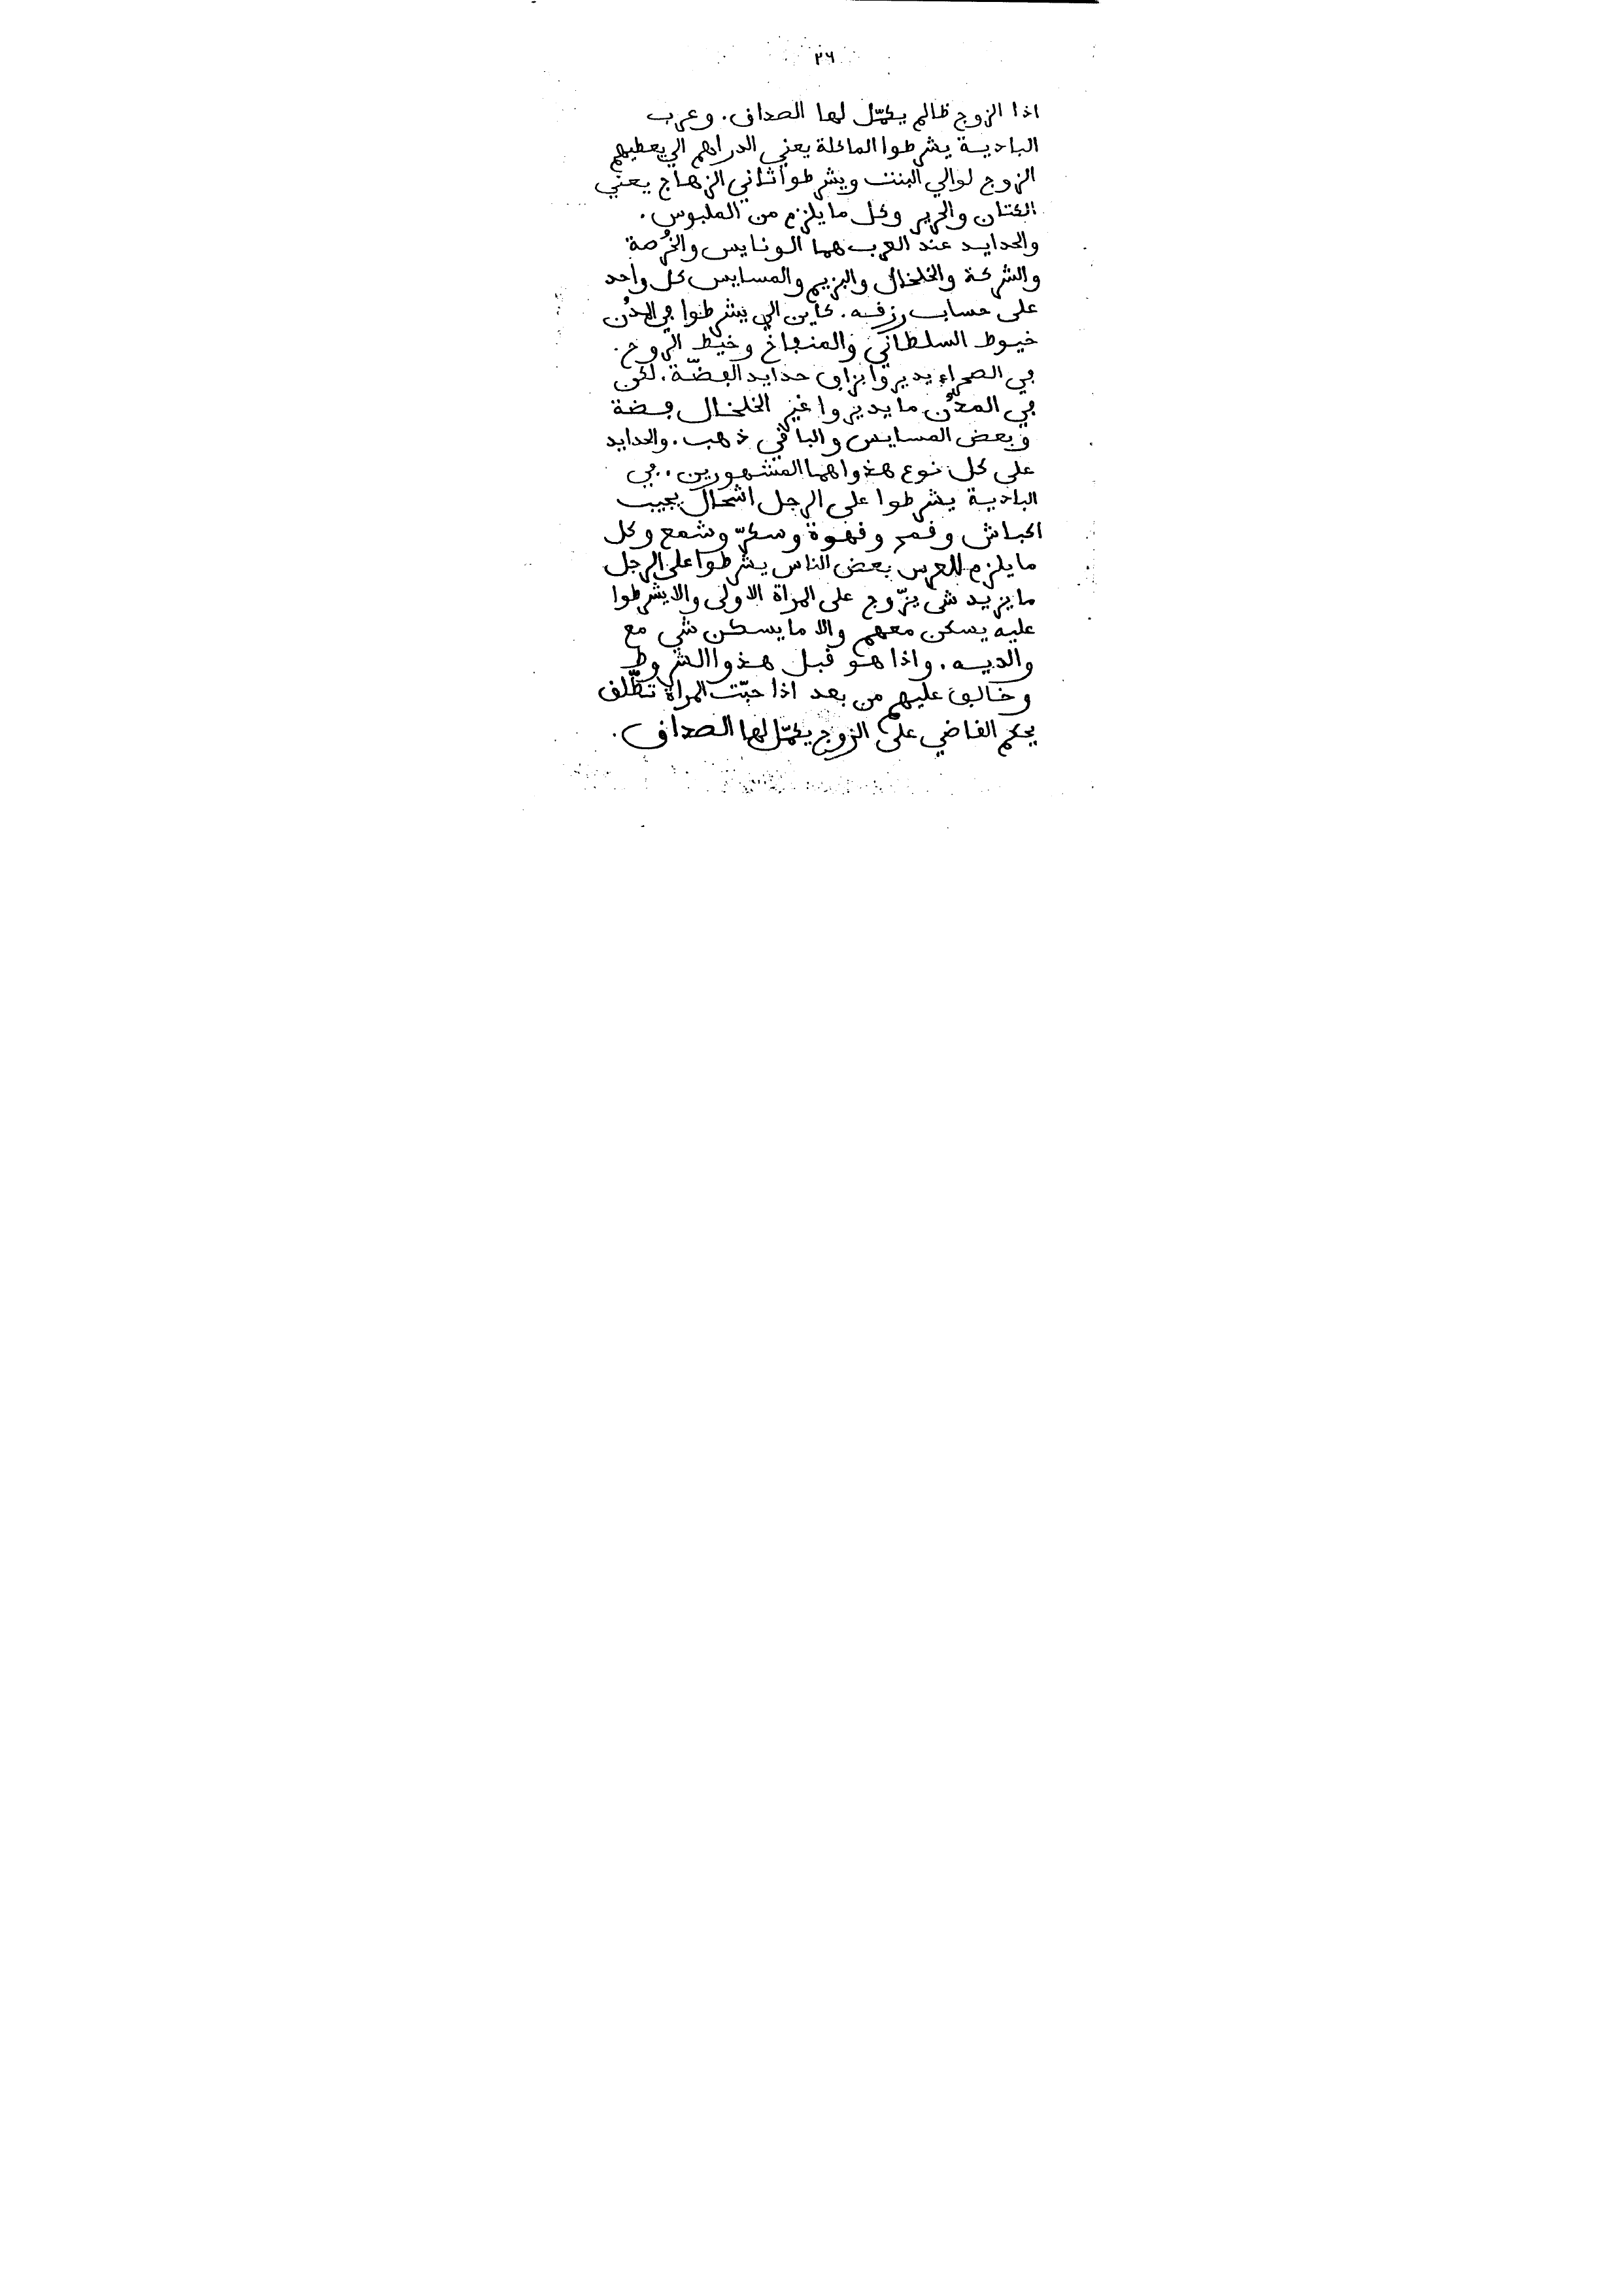 ٢٦
اذا الزوج ظالم يكمّل لها الصداڧ. وعرب
البادية يشرطوا الماكلة يعني الدراهم الي يعطيهم
الزوج لوالي البنت ويشرطوا ثاني الزهاج يعني
الكتان والحرير وكل ما يلزم من الملبوس.
والحدايد عند العرب هما الونايس والخُرصة
والشركة والخلخال والبزيم والمسايس كل واحد
على حساب رزڧه. كاين الي يشرطوا ڢي المدُن
خيوط السلطاني والمنڢاخ وخيط الروح.
ڢي الصحراء يديروا بزاڢ حدايد الڢضّة. لكن
ڢي المدُن ما يديروا غير الخلخال ڢضة
وبعض المسايس والباڧي ذهب. والحدايد
على كل نوع هذوا هما المشهورين. ڢي
البادية يشرطوا على الرجل اشحال يجيب
اكباش وڧمح وڧهوة وسكّر وشمع وكل
ما يلزم للعرس بعض الناس يشرطوا على الرجل
ما يزيد شي يزّوج على المراة الاولى والا يشرطوا
عليه يسكن معهم والا ما يسكن شي مع
والديه. واذا هو ڧبل هذوا الشروط
وخالڢ عليهم من بعد اذا حبّت المراة تطّلڧ
يحكم الڧاضي على الزوج يكمّل لها الصداڧ.